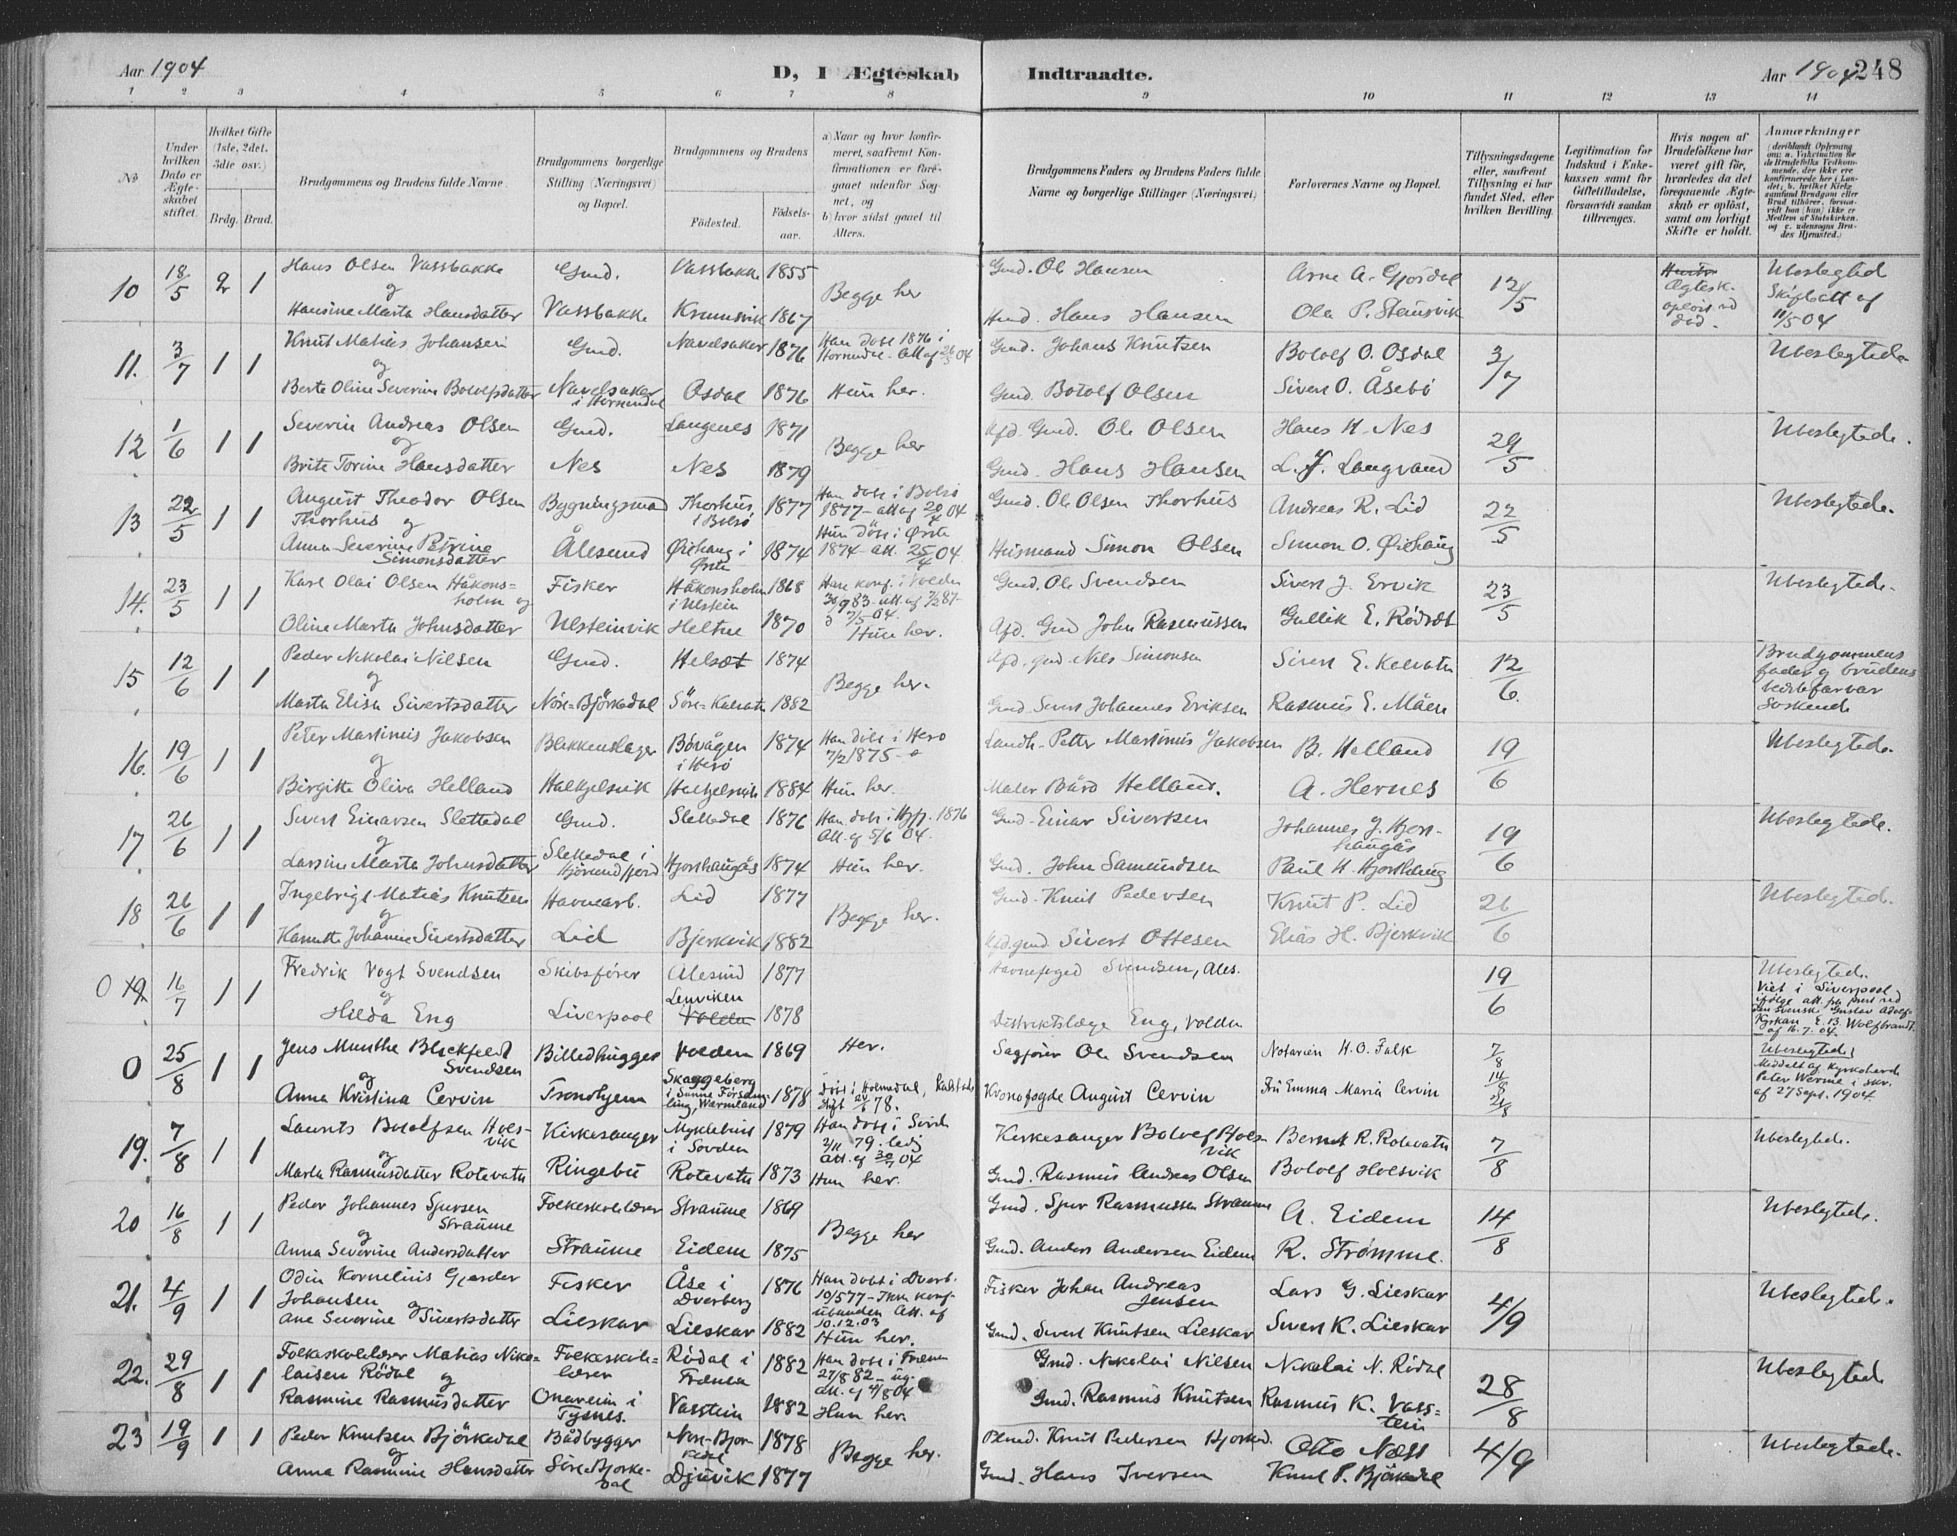 Aar 1904
D, I Ægteskab Indtraadte.
Aar 1904 248
1 2 3 4 5 6 7 8 9 10 11 12 13 14
No
Under hvilken Dato er Ægteskabet stiftet.
Hvilket Gifte (1ste, 2det, 3die osv.)
Brdg. Brud.
Brudgommens og Brudens fulde Navne.
Brudgommens borgerlige Stilling (Næringsvei) og Bopæl.
Brudgommens og Brudens
Fødested. Fødselsaar.
a) Naar og hvor konfirmeret, saafremt Konfirmationen er foregaaet udenfor Sognet, og
b) hvor sidst gaaet til Alters.
Brudgommens Faders og Brudens Faders fulde Navne og borgerlige Stillinger (Næringsvei)
Forlovernes Navne og Bopæl.
Tillysningsdagene eller, saafremt Tillysning ei har fundet Sted, efter hvilken Bevilling.
Legitimation for Indskud i Enkekassen samt for Giftetilladelse, forsaavidt saadan tiltrænges.
Hvis nogen af Brudefolkene har været gift før, hvorledes da det foregaaende Ægteskab er opløst, samt om lovligt Skifte er holdt.
Anmærkninger
10 18/5 2 1 Hans Olsen Vassbakke Gmd. Vassbakke 1855 Begge her Gmd. Ole Hansen Arne A. Gjørdal 12/5 Ægtesk. opløst ved død. Ubeslegted Skifteatt af 11/5 04
og
Hansine Marta Hansdatter Vassbakke Krumsvik 1867 Hans Hansen Ola P. Stensvik
11. 3/7 1 1 Knut Matias Johansen Gmd. Navelsaker 1876 Han døbt 1876 i Hornindal att af 26/5 04 Gmd. Johans Knutsen Botolf O. Osdal 3/7 Ubeslegtede
og
Berte Oline Severine Botolfsdatter Navelsaker i Hornindal Osdal 1876 Hun her. Gmd. Botolf Olsen Sivert O. Åsebø
12 1/6 1 1 Severin Andreas Olsen Gmd. Langenes 1871 Begge her Afd. Gmd. Ole Olsen Hans H. Nes 29/5 Ubeslegtede.
og
Brite Torine Hansdatter Nes Nes 1879 Gmd. Hans Hansen L. J. Langvand
13 22/5 1 1 August Theodor Olsen Thorhus og Bygningsmand Thorhus i Bolsø 1877 Han døbt i Bolsø 1877 - att af 20/4 04 Gmd. Ole Olsen Thorhus Andreas R. Lid 22/5 Ubeslegtede.
Anna Severine Petrine Simonsdatter Ålesund Øiehaug i Ørsta 1874 Hun døbt i Ørsta 1874 - att. 25/4 04 Husmand Simon Olsen Simon O. Øiehaug
14. 23/5 1 1 Karl Olai Olsen Håkonsholm og Fisker Håkonsholm i Ulstein 1868 Han konf. i Volden Gmd. Ole Svendsen Sivert J. Ervik 23/5 Ubeslegtede.
Oline Marta Johnsdatter Ulsteinvik Heltne 1870 Hun her. Afd. Gmd John Rasmussen Gullik E. Rødset
15 12/6 1 1 Peder Nikolai Nilsen Gmd. Helset 1874 Begge her. Afd. gmd Nils Simonsen Sivert E. Kalvatn 12/6. Brudgommens fader og brudens bedstefar var søskende
og
Marta Elisa Sivertsdatter Nøre-Bjørkedal Søre-Kalvatn 1882 Gmd. Sivert Johannes Eriksen Rasmus E. Måen
16. 19/6 1 1 Peter Martinus Jakobsen Blikkenslager Bøvågen i Herø 1874 Han døbt i Herø 7/2 1875 Landh. Petter Martinus Jakobsen B. Helland 19/6 Ubeslegtede.
og
Birgitte Oliva Helland Halkjelsvik Halkjelsvik 1884 Hun her. Maler Bård Helland. A. Hernes
17 26/6 1 1 Sivert Einarsen Slettedal Gmd. Slettedal 1876 Han døbt i Hjf. 1876 Att. af 5/6 04. Gmd. Einar Sivertsen Johannes J. Hjorthaugås 19/6 Ubeslegtede.
og
Larsine Marta Johnsdatter Slettedal i Hjørundfjord Hjorthaugås 1874 Hun her. Gmd. John Samundsen Paul H. Hjorthaug
18 26/6 1 1 Ingebrigt Matias Knutsen Havnearb. Lid 1877 Begge her. Gmd. Knut Pedersen Knut P. Lid 26/6 Ubeslegted.
og
Kanutte Johanne Sivertsdatter Lid Bjerkvik 1882 Afd. gmd. Sivert Ottesen Elias H. Bjerkvik
0 19 16/7 1 1 Fredrik Vogt Svendsen Skibsfører Ålesund 1877 Havnefoged Svendsen, Ales. 19/6 Ubeslegtede. Viet i Liverpool ifølge att. fra prest ved den svenske Gustav Adolfs Kyrkan E. B. Wolfbrandt af 16.7.04.
og
Hilda Eng Liverpool Lenviken Volden 1878 Distriktslæge Eng, Volden
0 25/8 1 1 Jens Munthe Blickfeldt Svendsen Billedhugger Volden 1869 Her. Sagfører Ole Svendsen Notarien H. O. Falk 7/8 14/8 21/8 Ubeslegtede, Meddelt af Kyrkoherde Peter Warme i skr. af 27 Sept. 1904
og
Anna Kristina Cervin Tronhjem Skaggeberg i Sunne Församling, Wermland 1878 Kronofogde August Cervin Fru Emma Maria Cervin
19. 7/8 1 1 Laurits Botolfsen Holsvik Kirkesanger Myklebust i Søvden 1879 Han døbt i Søvde 2/11 79. Kirkesanger Botolf Holsvik Bernt R. Rotevatn 7/8 Ubeslegtede.
og
Marta Rasmusdatter Rotevatn Ringebu Rotevatn 1873 Hun her. Gmd. Rasmus Andreas Olsen Botolf Holsvik
20 16/8 1 1 Peder Johannes Sjursen Straume Folkeskolelærer Straume 1869 Begge her Gmd. Sjur Rasmussen Straume A. Eidem 14/8 Ubeslegtede.
og
Anna Severine Andersdatter Straume Eidem 1875 Gmd. Anders Andersen Eidem R. Strømme.
21. 4/9 1 1 Odin Kornelius Gjerder Johansen og Fisker Åse i Dverberg 1876 Han døbt i Dverb. 10/5 77 - Att. af 10.12.03 Fisker Johan Andreas Jensen Lars G. Lieskar 4/9 Ubeslegtede.
Ane Severine Sivertsdatter Lieskar Lieskar 1882 Hun her. Gmd. Sivert Knutsen Lieskar Sivert K. Lieskar
22. 29/8 1 1 Folkeskolelærer Matias Nikolaisen Rødal og Folkeskolelærer Rødal i Frænen 1882 Han døbt i Frænen 27/8 82 Gmd. Nikolai Nilsen Nikolai N. Rødal 28/8 Ubeslegtede
Rasmine Rasmusdatter Onareim i Tysnes. Vasstein 1882 Hun her. Gmd. Rasmus Knutsen Rasmus K. Vasstein
23 19/9 1 1 Peder Knutsen Bjørkedal Bådbygger Nøre-Bjørkedal 1878 Begge her. Knut Pedersen Bjørked. Otto Næss 4/9 Ubeslegtede.
og
Anna Rasmine Hansdatter Søre Bjørkedal Djuvik 1877 Gmd. Hans Iversen Knut P. Bjørkedal